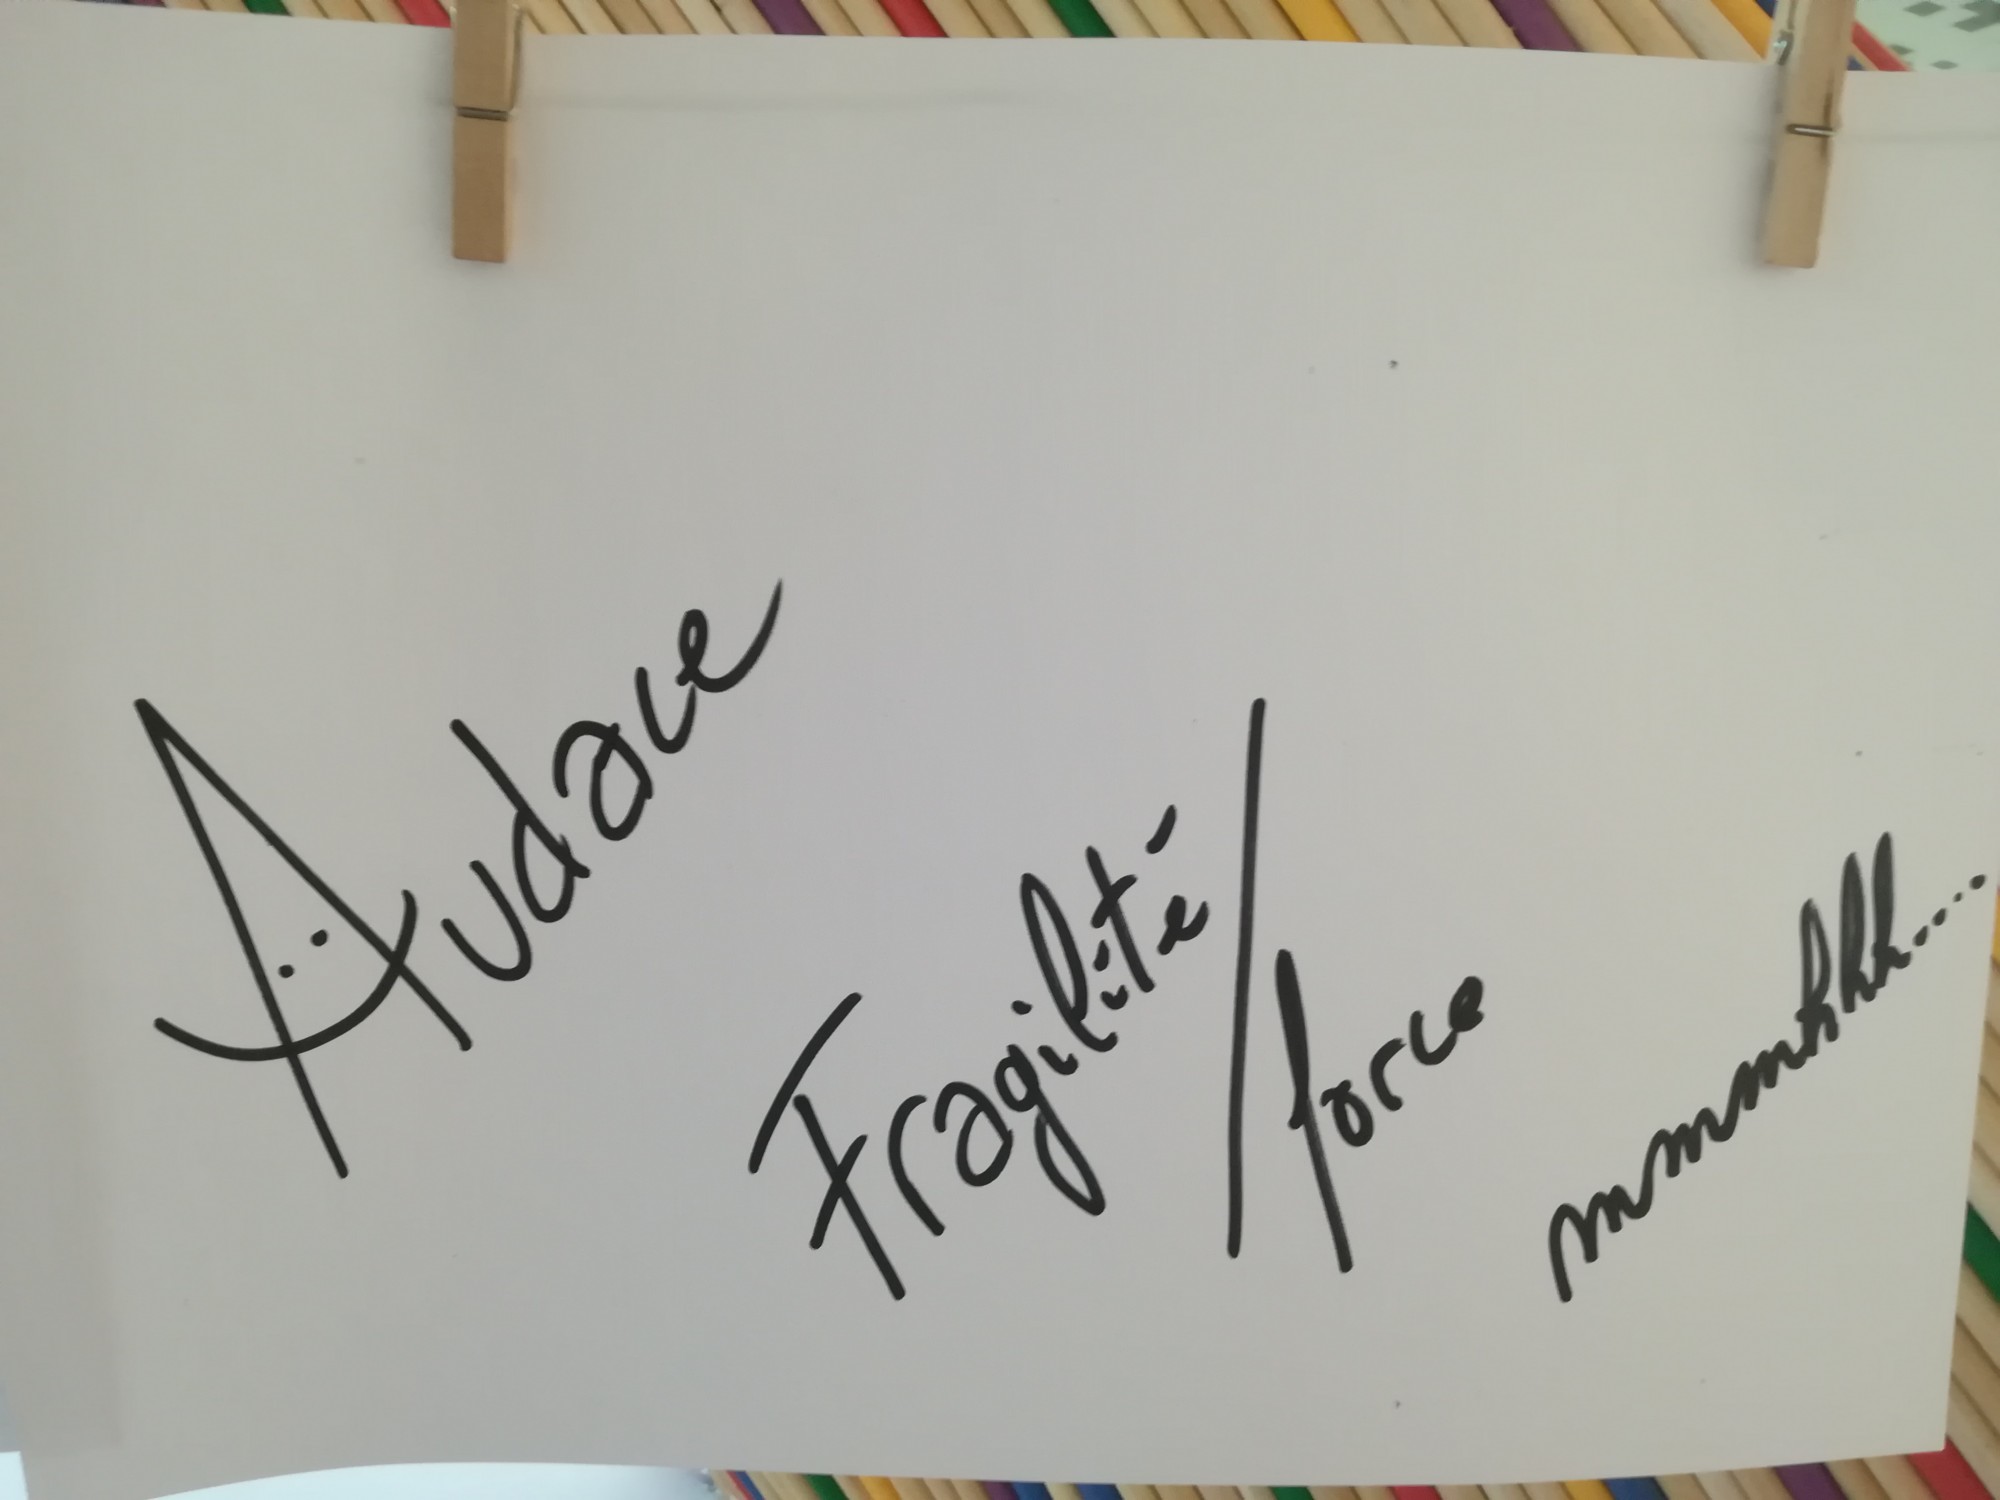 Audace
Fragilité/force
mmmmhhh....